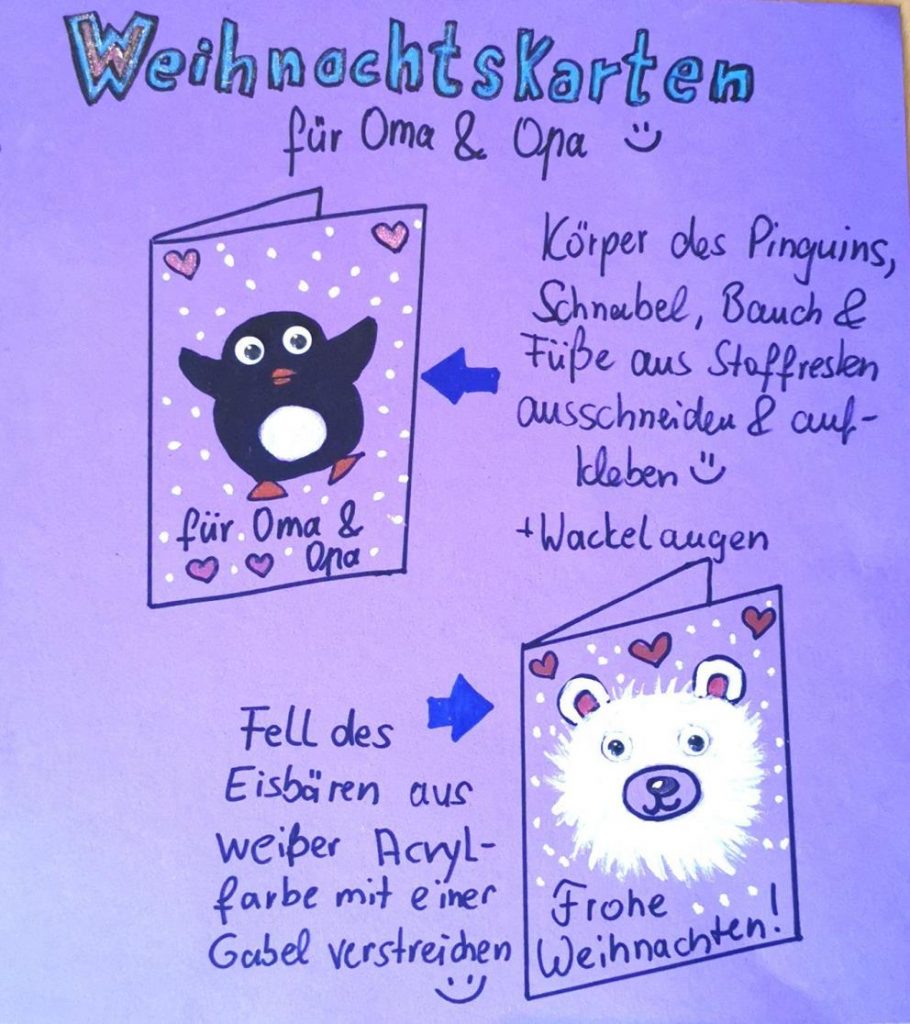 Weihnachtskarten
für Oma & Opa
Körper des Pinguins,
Schnabel, Bauch &
Füße aus Stoffresten
ausschneiden & auf-
kleben
+ Wackelaugen
für Oma &
Opa
Fell des
Eisbären aus
weißer Acryl-
farbe mit einer
Gabel verstreichen
Frohe
Weihnachten!